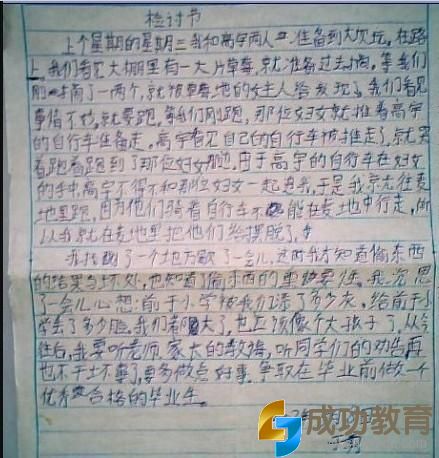 检讨节
上个星期的星期三我和高宇两人 准备到大坝玩。在路
上我们看见大棚里有一大片草莓,就准备过去摘。等我们
刚 摘了一两个,就被草莓地的女主人给发现了。我们看见
事情不妙,就要跑。等我们刚跑,那位妇女就推着高宇
的自行车准备走。高宇看见自己的自行车被推走了,就哭
着跑着跑到了那位妇女那边。由于高宇的自行车在妇女
的手中,高宇不得不和那位妇女一起追我。于是我就往麦
地里跑,因为他们骑着自行车不 能在麦地中行走,所
以我就在麦地里把他们给摆脱了。
我找了一个地方歇了一会儿,这时我才知道偷东西
的结果与坏处,也知道偷东西的 要性。我 思
了一会儿心想:前于小学被我们 了多少灰,给前于小
学丢了多少脸。我们都大了,也应该像个大孩子了。从今
往后,我要听老师、家长的教诲,听同学们的劝告,再
也不干坏事了,要多做点好事,争取在毕业前做一个
优秀 合格的毕业生。
成功教育